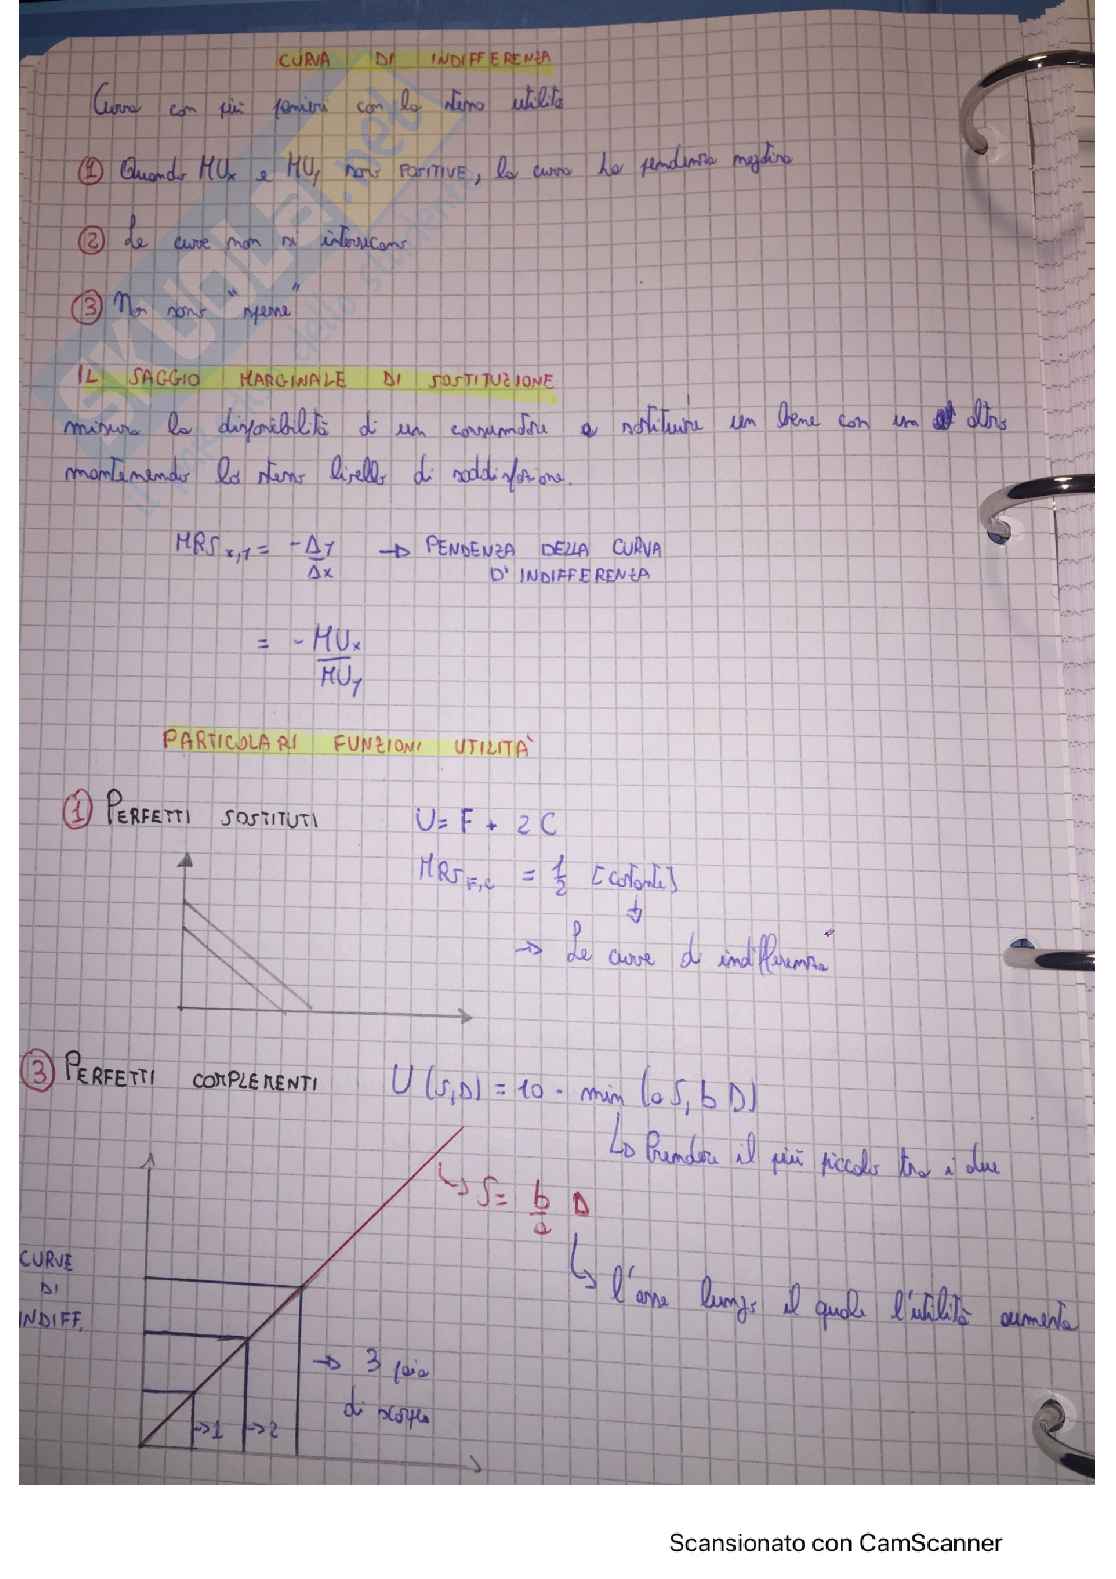 CURVA DI INDIFFERENZA
Curva con più panieri con la stessa utilità
① Quando MUx e MUy sono POSITIVE, la curva ha pendenza negativa
② Le curve non si intersecano
③ Non sono "spesse"
IL SAGGIO MARGINALE DI SOSTITUZIONE
misura la disponibilità di un consumatore a sostituire un bene con un altro
mantenendo lo stesso livello di soddisfazione.
MRS x,y = -Δy/Δx → PENDENZA DELLA CURVA
D'INDIFFERENZA
= -MUx/MUy
PARTICOLARI FUNZIONI UTILITÀ
① PERFETTI SOSTITUTI U = F + 2C
MRS F,C = 1/2 [costante]
→ Le curve di indifferenza
③ PERFETTI COMPLEMENTI U (S,D) = 10 · min (aS, bD)
↳ Prendere il più piccolo tra i due
↳ S = b/a D
↳ l'asse lungo il quale l'utilità aumenta
CURVE
DI
INDIFF.
→ 3 paia
di scarpe
→1 →2
SKUOLA.net
Scansionato con CamScanner